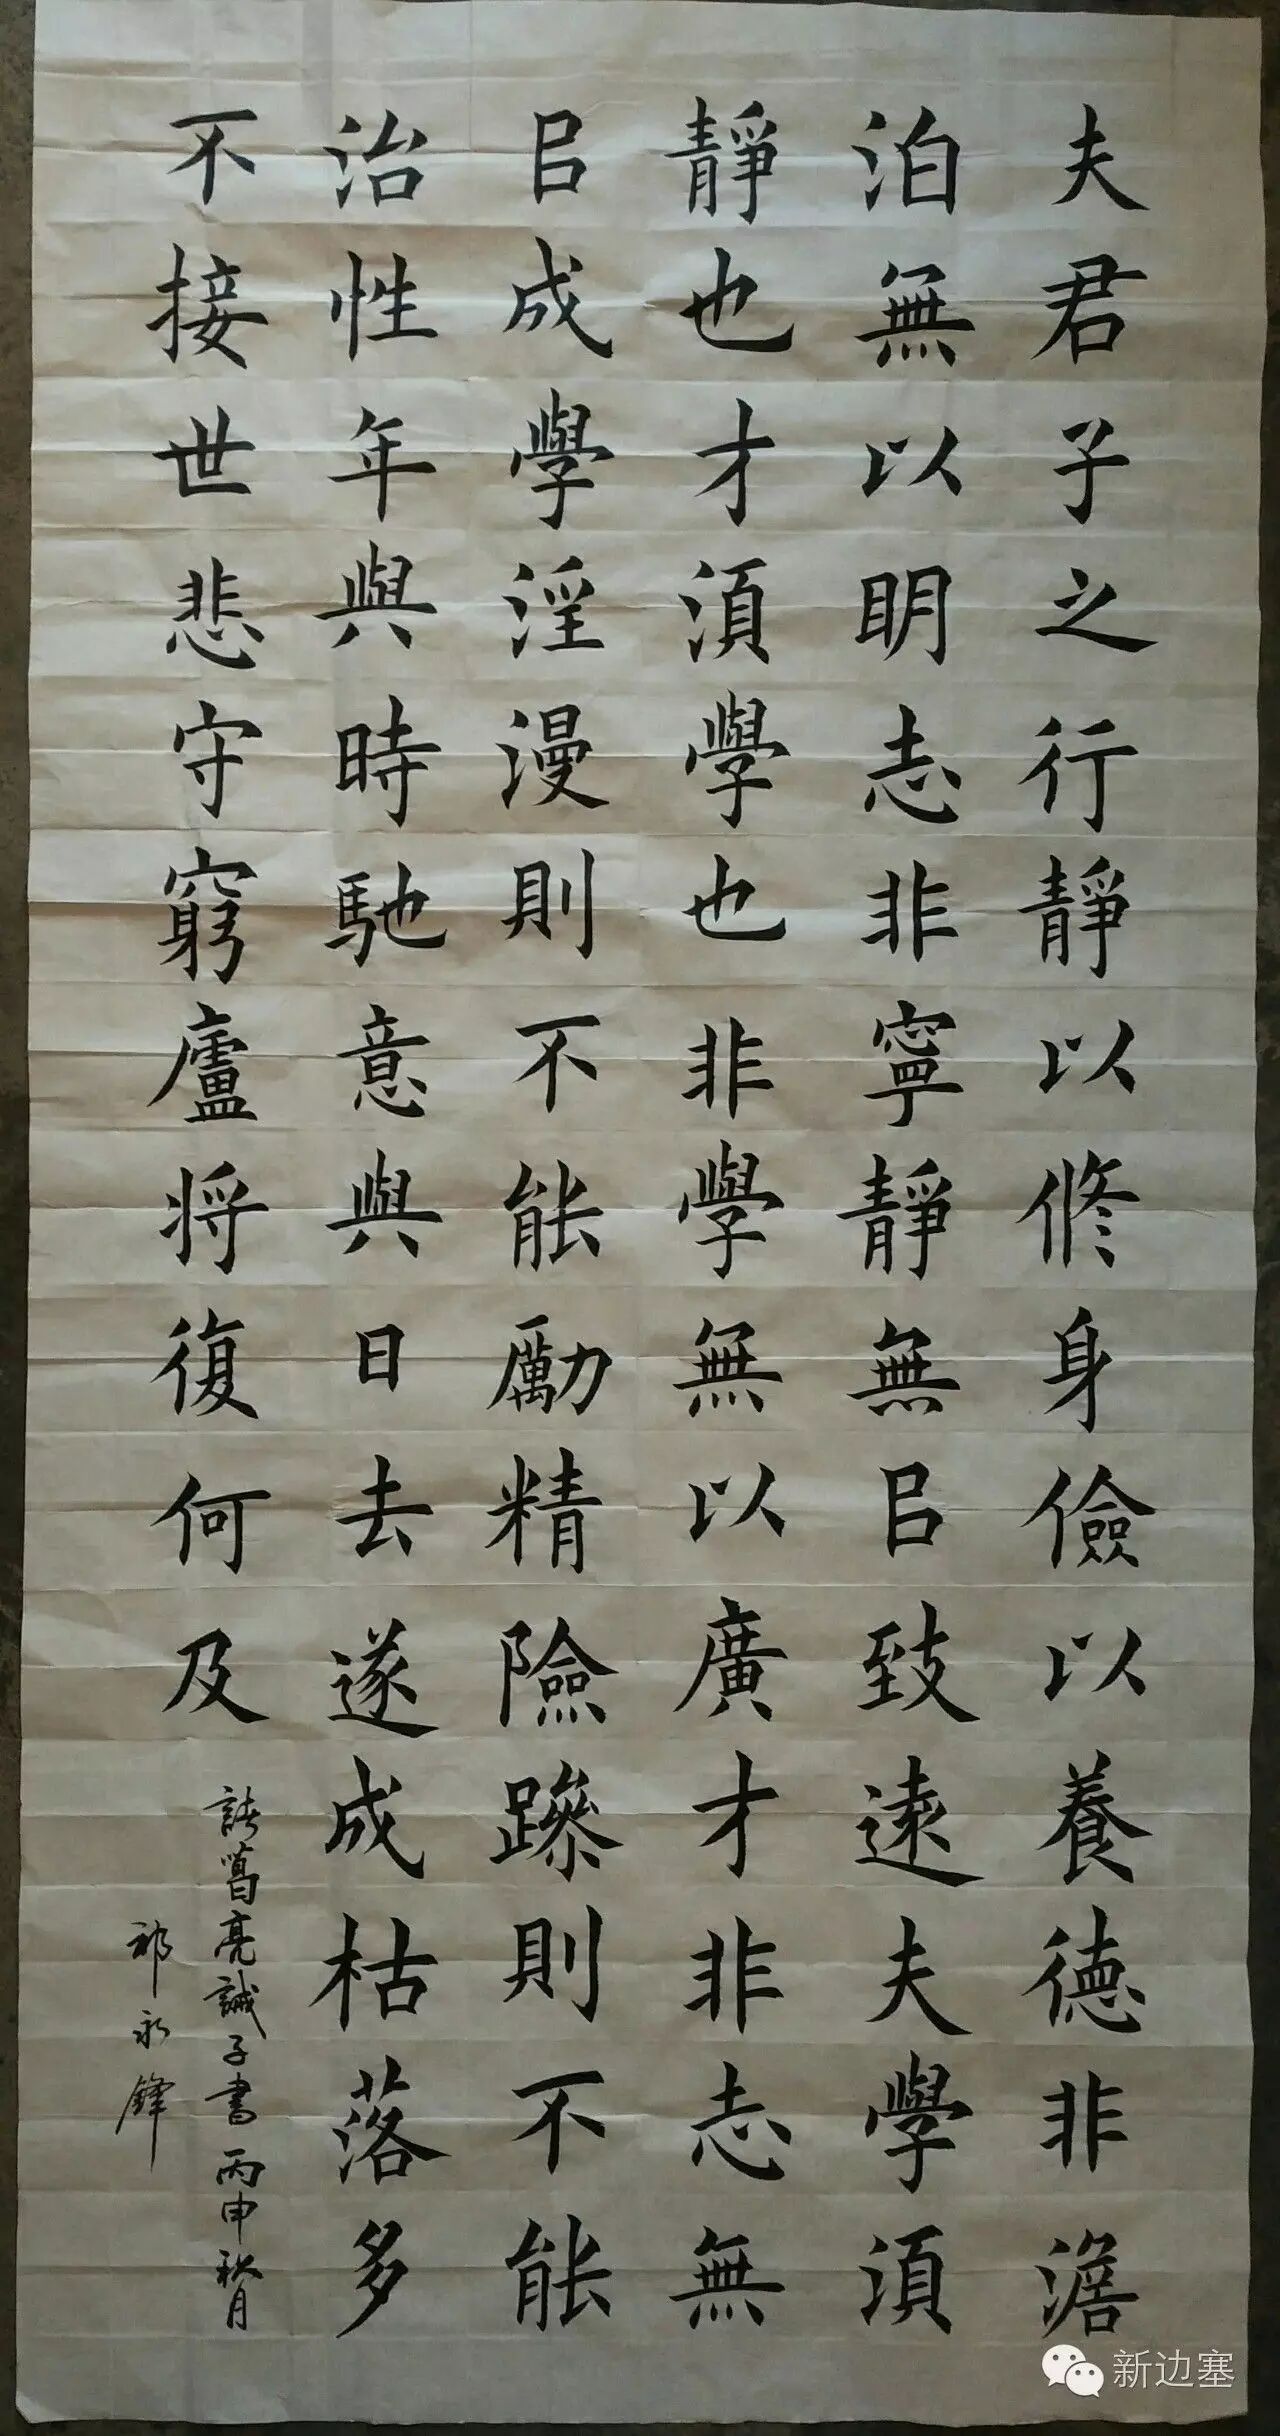 夫君子之行靜以修身儉以養德非澹
泊無以明志非寧靜無㠯致遠夫學須
靜也才須學也非學無以廣才非志無
㠯成學淫漫則不能勵精險躁則不能
治性年與時馳意與日去遂成枯落多
不接世悲守窮廬将復何及
諸葛亮誡子書丙申秋月
祁永鋒
新边塞